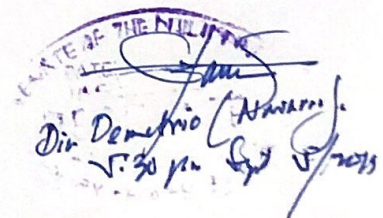 SENATE OF THE PHILIPPINES
Dir Demetrio (Navarro).
5:30 pm Sept 5/2019